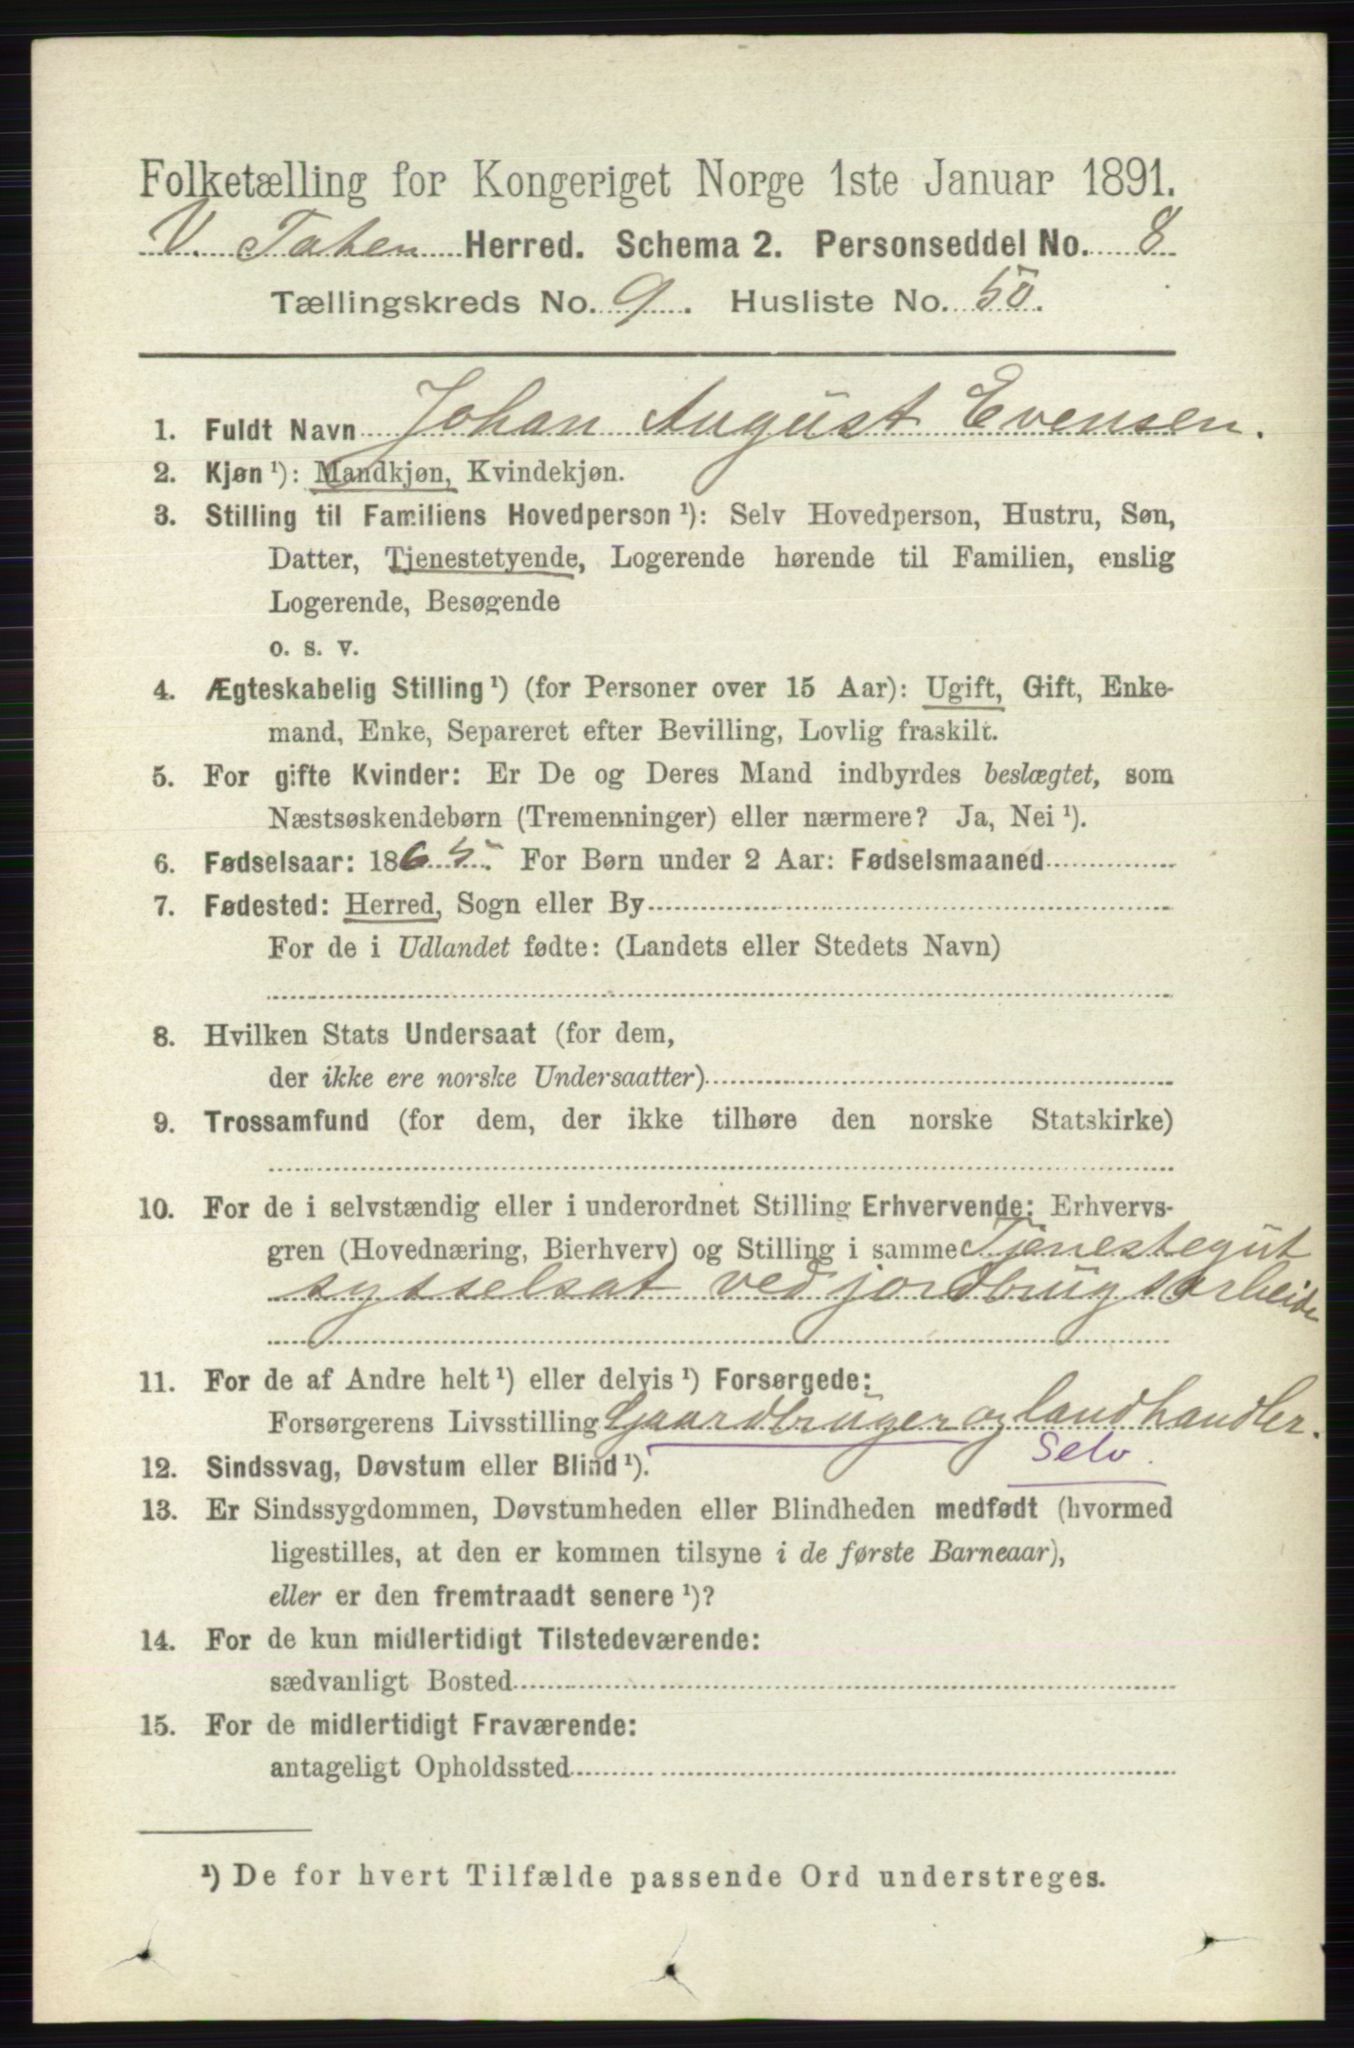 Folketælling for Kongeriget Norge 1ste Januar 1891.
V. Toten Herred. Schema 2. Personseddel No. 8
Tællingskreds No. 9. Husliste No. 50.
1. Fuldt Navn Johan August Evensen.
2. Kjøn ¹): Mandkjøn, Kvindekjøn.
3. Stilling til Familiens Hovedperson ¹): Selv Hovedperson, Hustru, Søn,
Datter, Tjenestetyende, Logerende hørende til Familien, enslig
Logerende, Besøgende
o. s. v.
4. Ægteskabelig Stilling ¹) (for Personer over 15 Aar): Ugift, Gift, Enke-
mand, Enke, Separeret efter Bevilling, Lovlig fraskilt.
5. For gifte Kvinder: Er De og Deres Mand indbyrdes beslægtet, som
Næstsøskendebørn (Tremenninger) eller nærmere? Ja, Nei ¹).
6. Fødselsaar: 1865. For Børn under 2 Aar: Fødselsmaaned
7. Fødested: Herred, Sogn eller By
For de i Udlandet fødte: (Landets eller Stedets Navn)
8. Hvilken Stats Undersaat (for dem,
der ikke ere norske Undersaatter)
9. Trossamfund (for dem, der ikke tilhøre den norske Statskirke)
10. For de i selvstændig eller i underordnet Stilling Erhvervende: Erhvervs-
gren (Hovednæring, Bierhverv) og Stilling i samme Tjenestegut
sysselsat ved jordbrugsarbeide
11. For de af Andre helt ¹) eller delvis ¹) Forsørgede:
Forsørgerens Livsstilling Gaardbruger og landhandler.
Selv.
12. Sindssvag, Døvstum eller Blind ¹).
13. Er Sindssygdommen, Døvstumheden eller Blindheden medfødt (hvormed
ligestilles, at den er kommen tilsyne i de første Barneaar),
eller er den fremtraadt senere ¹)?
14. For de kun midlertidigt Tilstedeværende:
sædvanligt Bosted
15. For de midlertidigt Fraværende:
antageligt Opholdssted
¹) De for hvert Tilfælde passende Ord understreges.